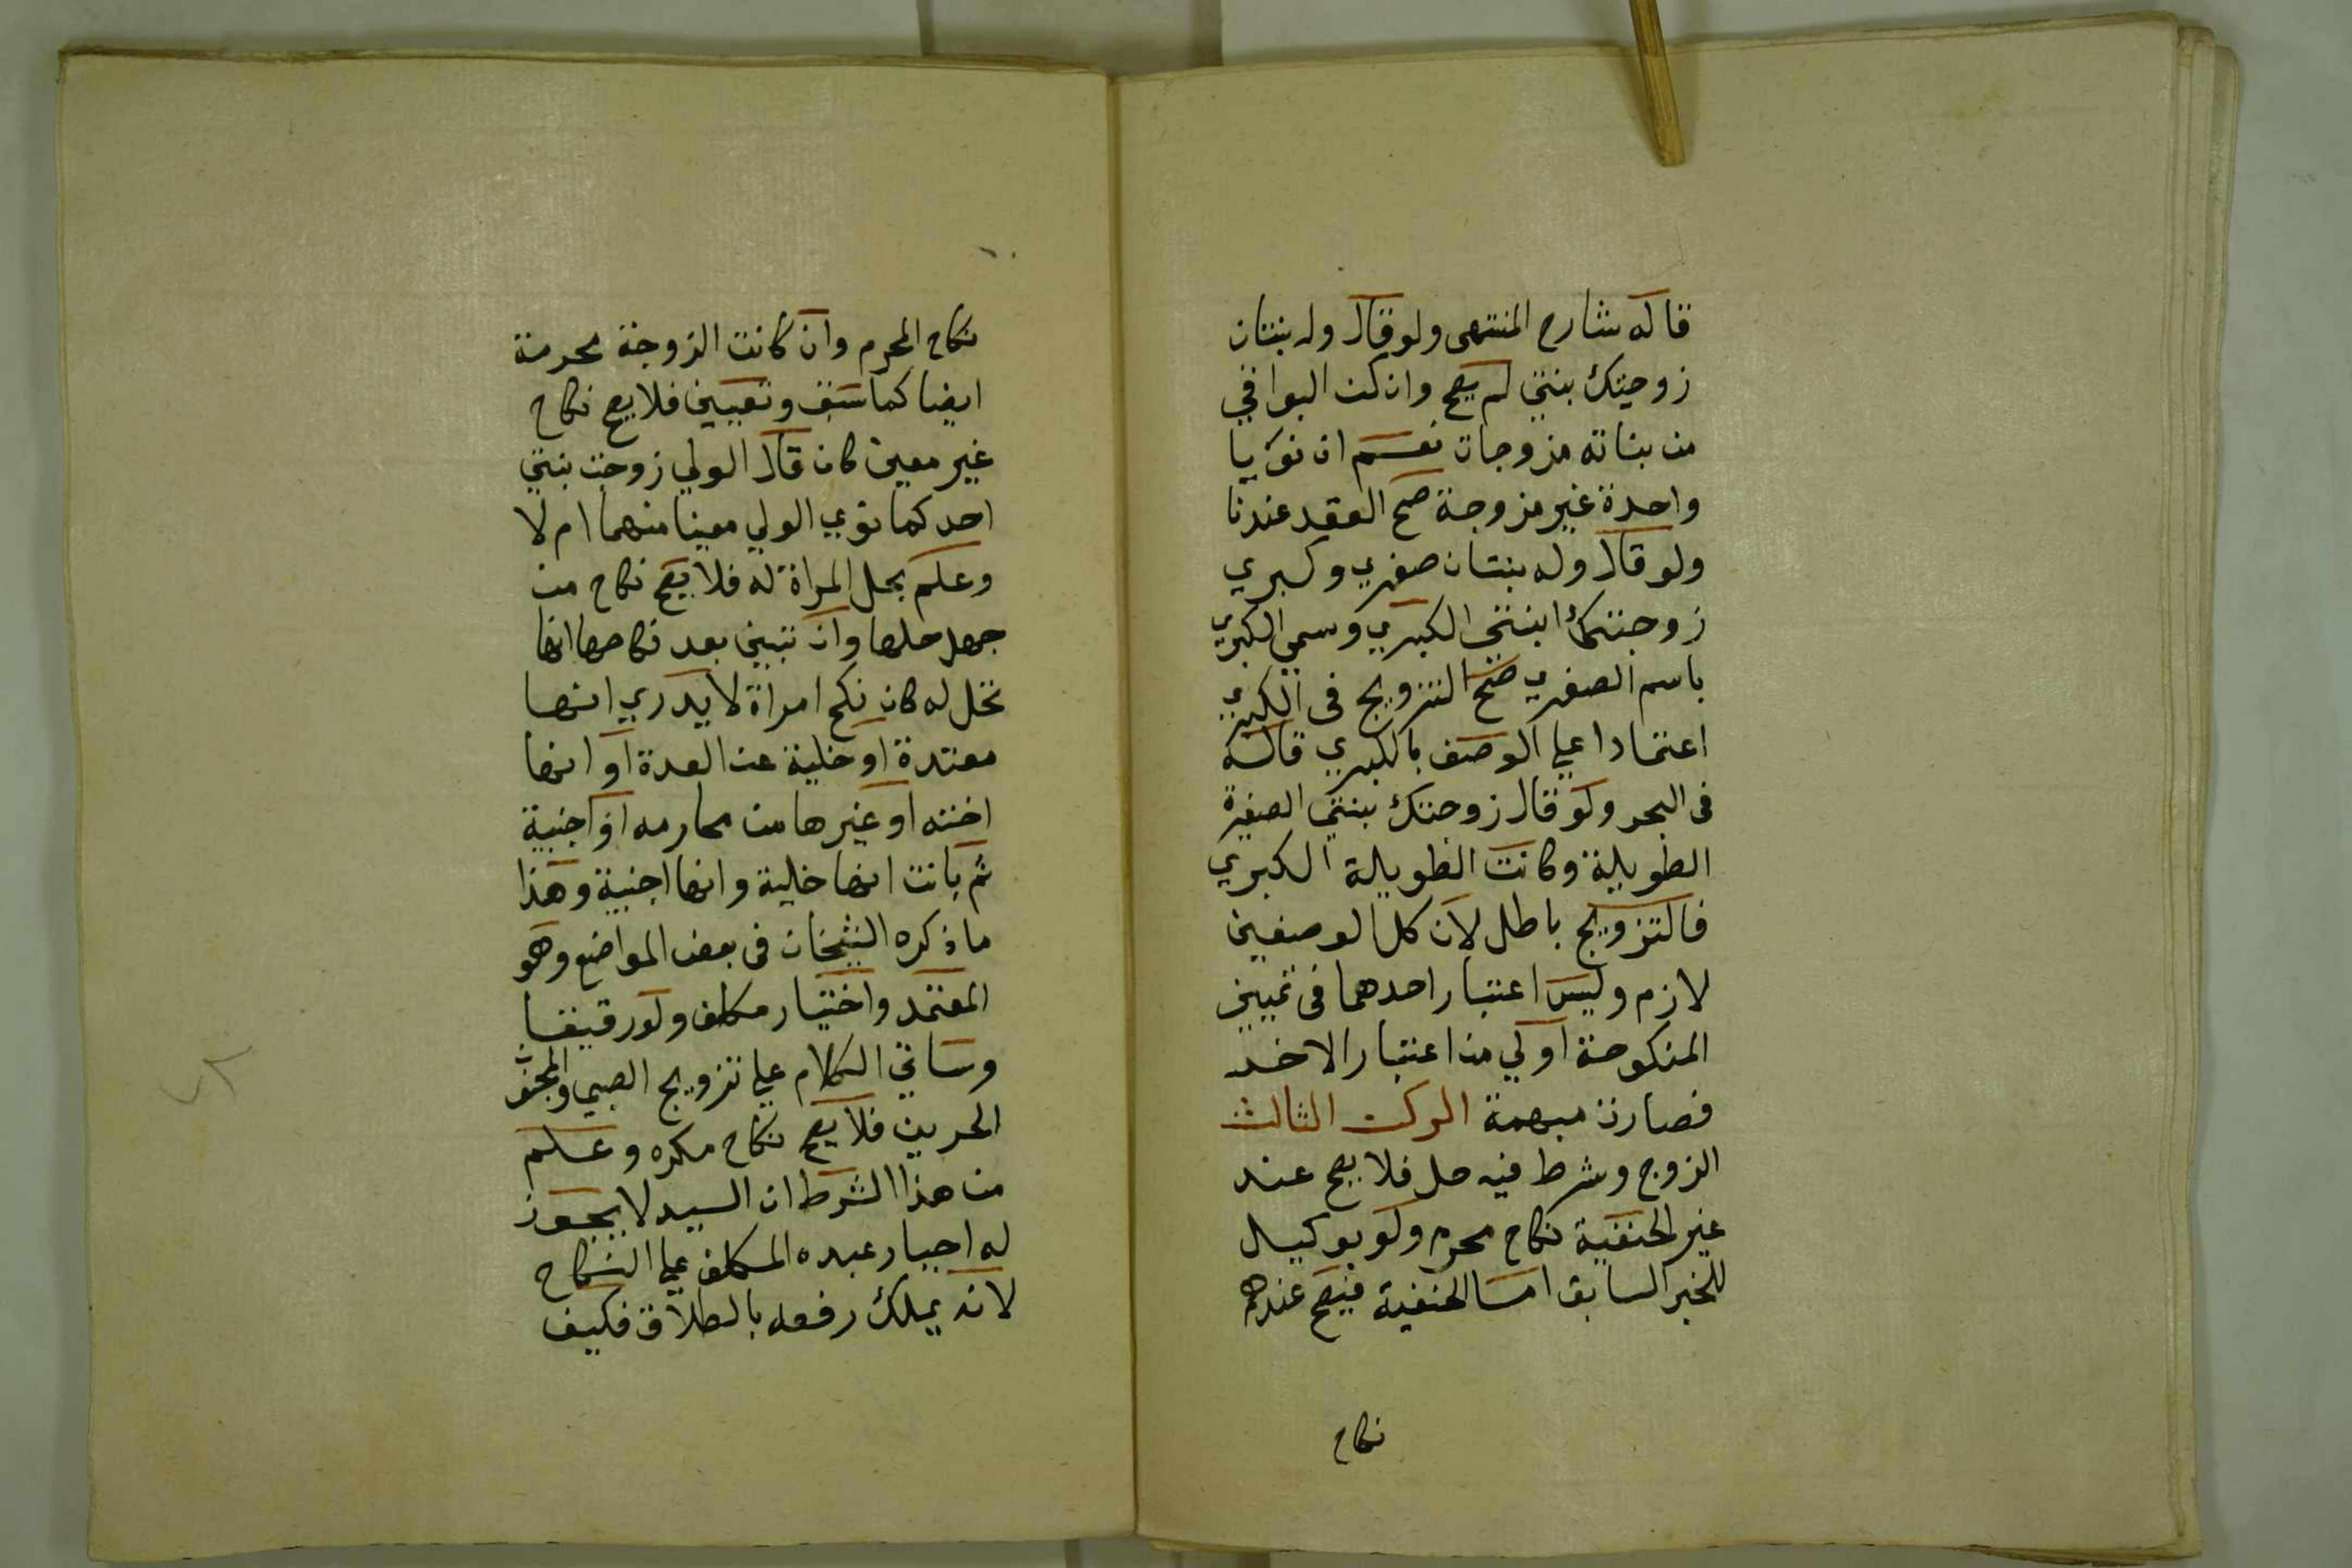 قاله شارح المنتهى ولو قال وله بنتان
زوجتك بنتي لم يصح وان كن البواقي
من بناته مزوجات نعم ان نويا
واحدة غير مزوجة صح العقد عندنا
ولو قال وله بنتان صغري وكبري
زوجتك ابنتي الكبري وسمي الكبري
باسم الصغري صح التزويج فى الكبري
اعتمادا علي الوصف بالكبري قاله
فى البحر ولو قال زوجتك بنتي الصغيرة
الطويلة وكانت الطويلة الكبري
فالتزويج باطل لان كلا الوصفين
لازم وليس اعتبار احدهما فى تمييز
المنكوحة اولي من اعتبار الاخر
فصارت مبهمة الركن الثالث
الزوج وشرط فيه حل فلا يصح عند
غير الحنفية نكاح محرم ولو بوكيل
للخبر السابق امسا الحنفية فيصح عندهم
نكاح
نكاح المحرم وان كانت الزوجة محرمة
ايضا كما سبق وتعيين فلا يصح نكاح
غير معين كان قال الولي زوجت بنتي
احدكما نوي الولي معينا منهما ام لا
وعلم بحل المراة له فلا يصح نكاح من
جهل حلها وان تبين بعد نكاحها انها
تحل له كان نكح امراة لا يدري انها
معتدة او خلية عن العدة او انها
اخته او غيرها من محارمه او اجنبية
ثم بانت انها خلية وانها اجنبية وهذا
ما ذكره الشيخان فى بعض المواضع وهو
المعتمد واختيار مكلف ولو رقيقا
وساتي الكلام علي تزويج الصبي والمجنون
الحرين فلا يصح نكاح مكره وعلم
من هذا الشرط ان السيد لا يجوز
له اجبار عبده المكلف علي النكاح
لانه يملك رفعه بالطلاق فكيف